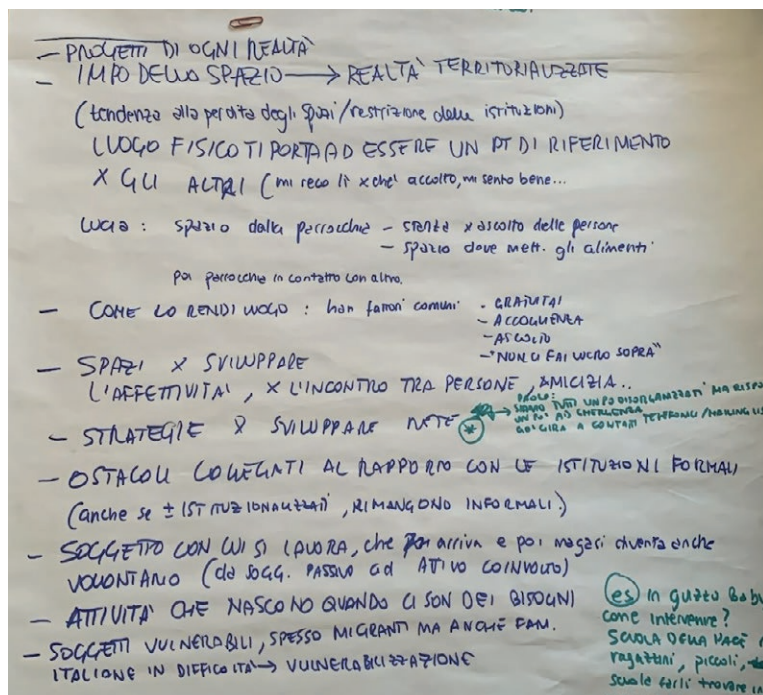 - PROGETTI DI OGNI REALTÀ
- IMPO DELLO SPAZIO → REALTÀ TERRITORIALIZZATE
(tendenza alla perdita degli spazi/restrizione delle istituzioni)
LUOGO FISICO TI PORTA AD ESSERE UN PT DI RIFERIMENTO
X GLI ALTRI (mi reco lì xché accolto, mi sento bene...
LUCIA: spazio dalla parrocchia - stanza x ascolto delle persone
- spazio dove mett. gli alimenti
poi parrocchia in contatto con altro.
- COME LO RENDI LUOGO: han fattori comuni - GRATUITÀ
- ACCOGLIENZA
- ASCOLTO
- "NON CI FAI LUCRO SOPRA"
- SPAZI X SVILUPPARE
L'AFFETTIVITÀ, X L'INCONTRO TRA PERSONE, AMICIZIA..
- STRATEGIE X SVILUPPARE RETE * →
PAOLO:
SIAMO TUTTI UN PO DISORGANIZZATI MA
UN PO' AD EMERGENZA
GIRA A CONTATTI TELEFONICI/MAILING
- OSTACOLI COLLEGATI AL RAPPORTO CON LE ISTITUZIONI FORMALI
(anche se ± ISTITUZIONALIZZATI, RIMANGONO INFORMALI)
- SOGGETTO CON CUI SI LAVORA, che arriva e poi magari diventa anche
VOLONTARIO (da SOGG. PASSIVO ad ATTIVO COINVOLTO)
- ATTIVITÀ CHE NASCONO QUANDO CI SON DEI BISOGNI
- SOGGETTI VULNERABILI, SPESSO MIGRANTI MA ANCHE FAM.
ITALIANE IN DIFFICOLTÀ → VULNERABILIZZAZIONE
es in
come intervenire?
SCUOLA DELLA PACE
ragazzini, piccoli,
scuole farli trovare